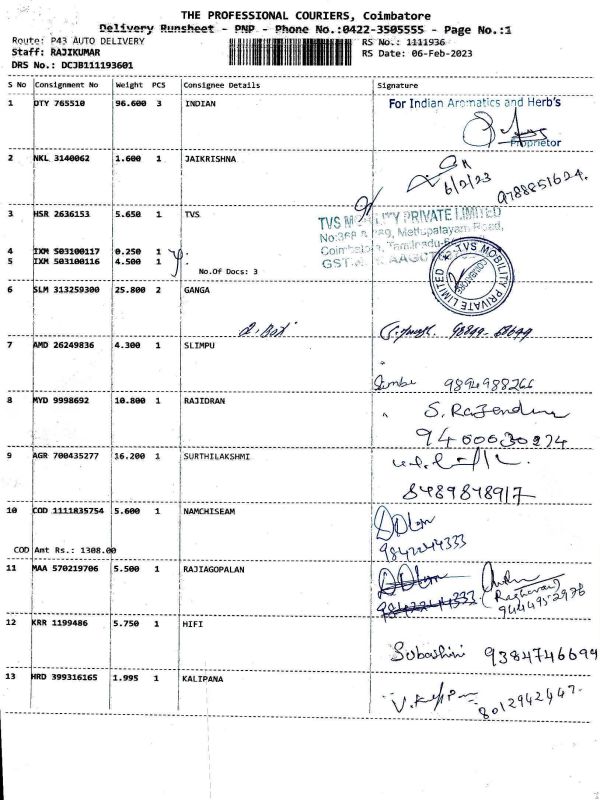 THE PROFESSIONAL COURIERS, Coimbatore
Delivery Runsheet - PNP - Phone No.:0422-3505555 - Page No.:1
Route: P43 AUTO DELIVERY RS No.: 1111936
Staff: RAJIKUMAR RS Date: 06-Feb-2023
DRS No.: DCJB111193601
S No Consignment No Weight PCS Consignee Details Signature
1 DTY 765510 96.600 3 INDIAN For Indian Aromatics and Herb's
Proprietor
2 NKL 3140062 1.600 1 JAIKRISHNA
6/2/23 9788851624.
3 HSR 2636153 5.650 1 TVS TVS MOBILITY PRIVATE LIMITED
Mettupalayam Road,
4 IXM 503100117 0.250 1 Coimbatore, Tamilnadu
5 IXM 503100116 4.500 1
No.Of Docs: 3
TVS MOBILITY PRIVATE LIMITED
COIMBATORE
6 SLM 313259300 25.800 2 GANGA
7 AMD 26249836 4.300 1 SLIMPU
9894988266
8 MYD 9998692 10.800 1 RAJIDRAN S. Rajendra
9 AGR 700435277 16.200 1 SURTHILAKSHMI
8489848917
10 COD 1111835754 5.600 1 NAMCHISEAM
9842244333
COD Amt Rs.: 1308.00
11 MAA 570219706 5.500 1 RAJIAGOPALAN
(Raghavan)
9444952976
12 KRR 1199486 5.750 1 HIFI
Subashini 9384746694
13 HRD 399316165 1.995 1 KALIPANA
8012942447.